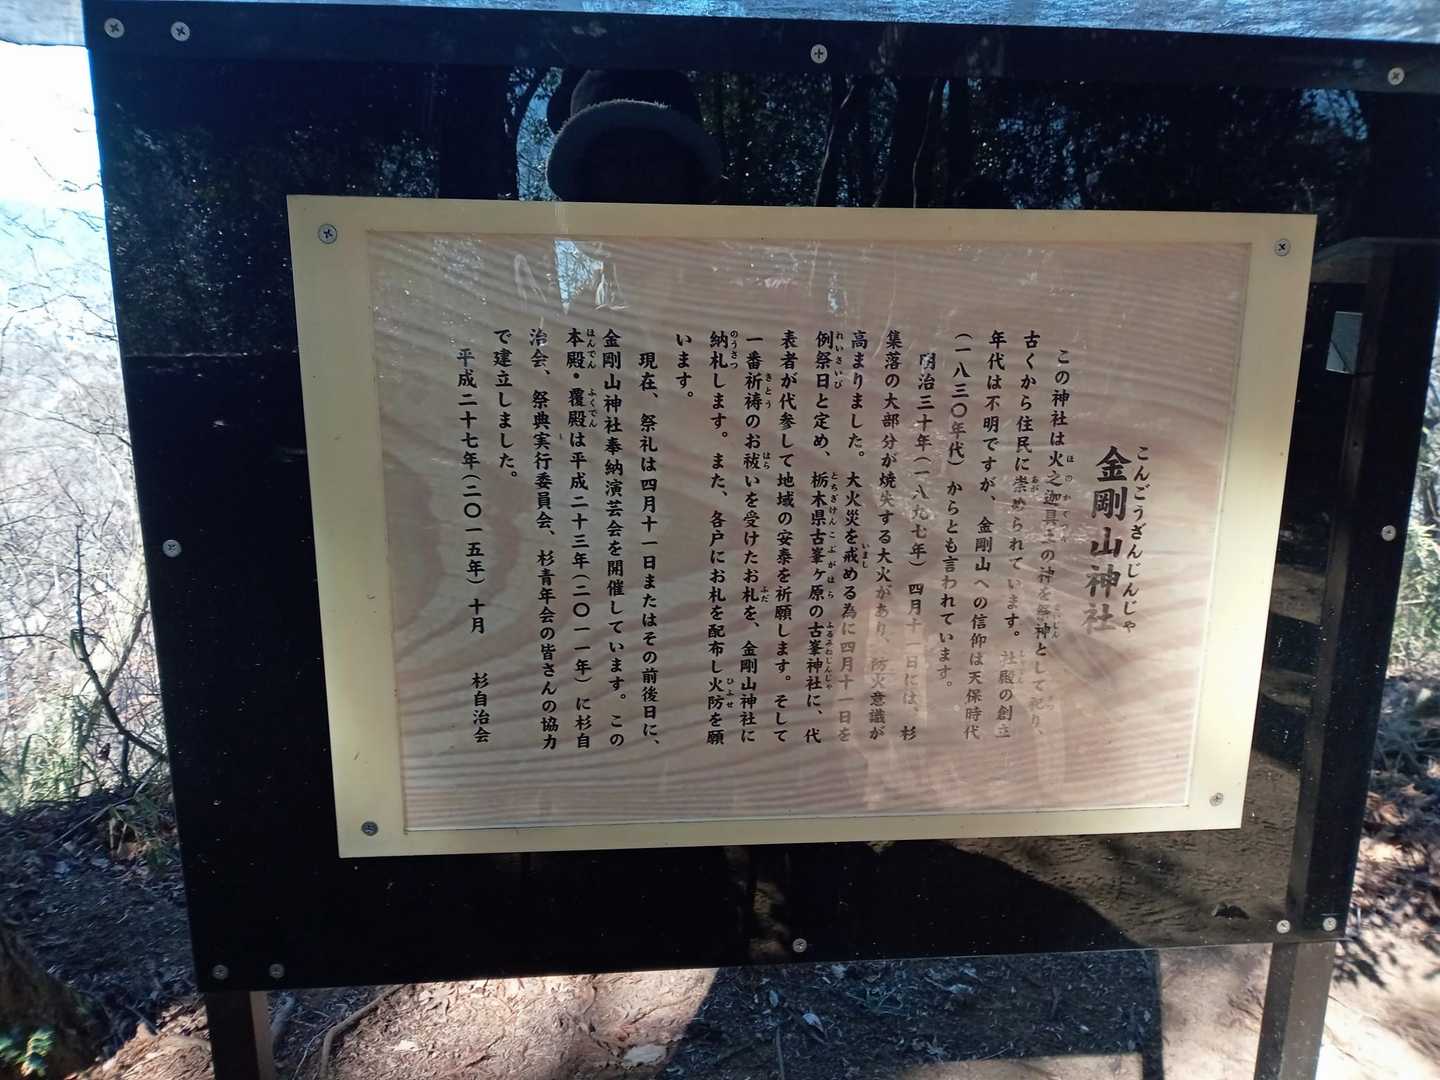 こんごうざんじんじゃ
金剛山神社
この神社は火之迦具土の神を祭神として祀り、
古くから住民に崇められています。社殿の創立
年代は不明ですが、金剛山への信仰は天保時代
(一八三〇年代)からとも言われています。
明治三十年(一八九七年)四月十一日には、杉
集落の大部分が焼失する大火があり、防火意識が
高まりました。大火災を戒める為に四月十一日を
例祭日と定め、栃木県古峯ヶ原の古峯神社に、代
表者が代参して地域の安泰を祈願します。そして
一番祈祷のお祓いを受けたお札を、金剛山神社に
納札します。また、各戸にお札を配布し火防を願
います。
現在、祭礼は四月十一日またはその前後日に、
金剛山神社奉納演芸会を開催しています。この
本殿・覆殿は平成二十三年(二〇一一年)に杉自
治会、祭典実行委員会、杉青年会の皆さんの協力
で建立しました。
平成二十七年(二〇一五年)十月 杉自治会